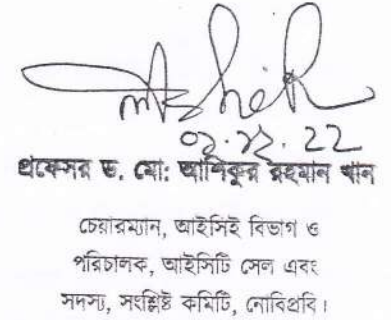 প্রফেসর ড. মো: আশিকুর রহমান খান
চেয়ারম্যান, আইসিই বিভাগ ও
পরিচালক, আইসিটি সেল এবং
সদস্য, সংশ্লিষ্ট কমিটি, নোবিপ্রবি।